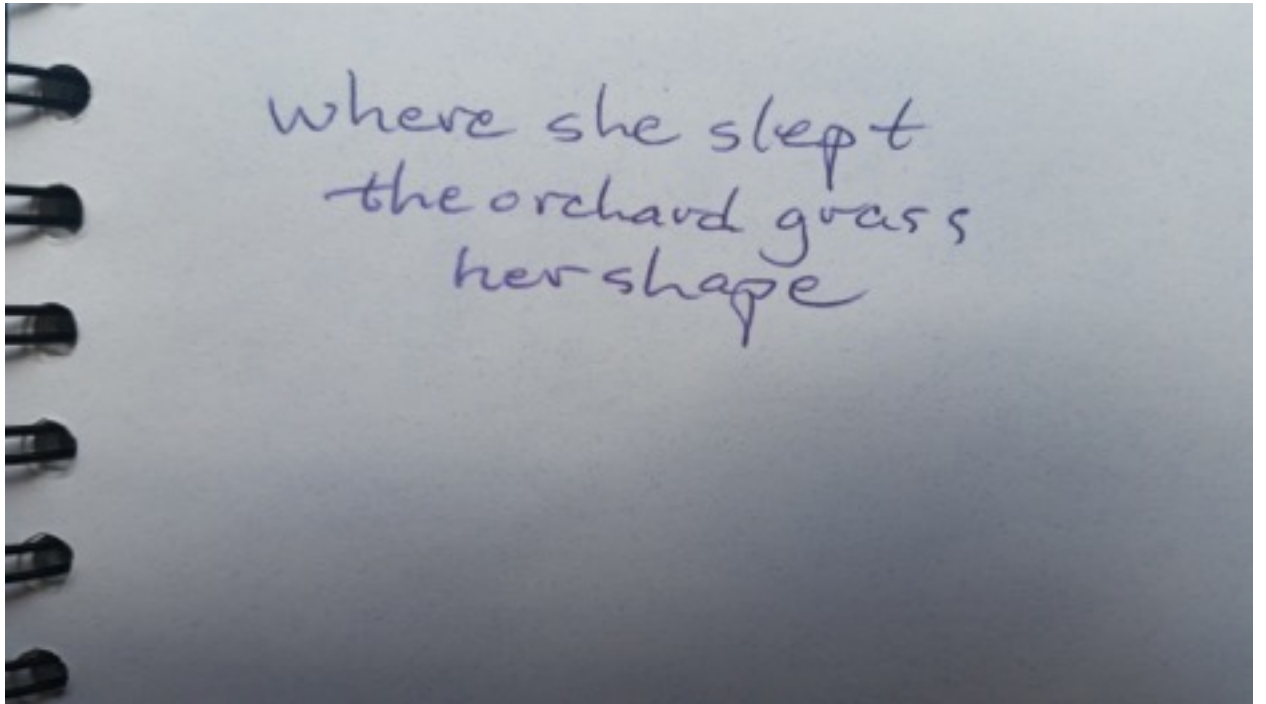 where she slept
the orchard grass
her shape